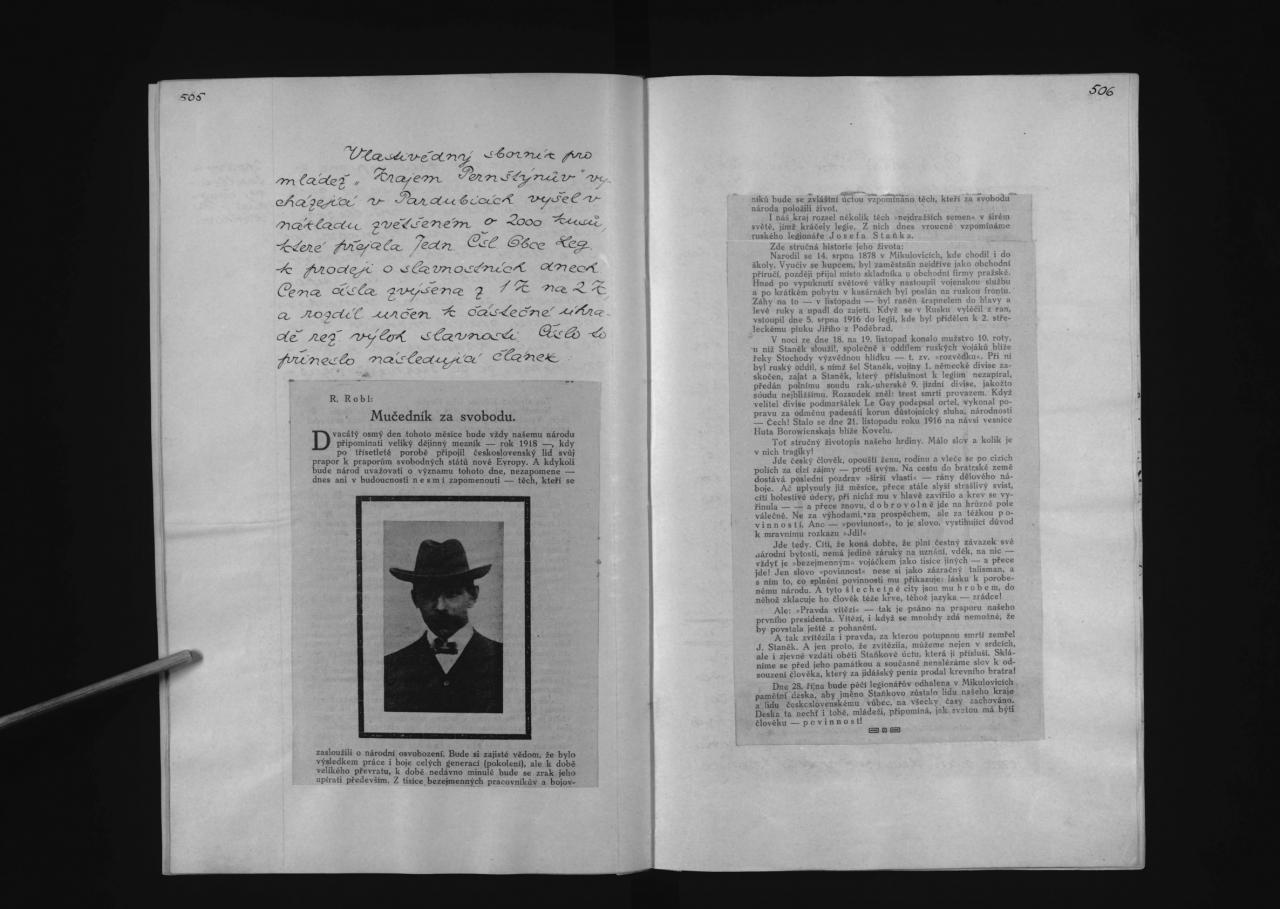 505
Vlastivědný sborník pro
mládež „Krajem Pernštýnův" vy-
cházející v Pardubicích vyšel v
nákladu zvětšeném o 2000 kusů,
které přejala Jedn Čsl Obce Leg.
k prodeji o slavnostních dnech
Cena čísla zvýšena z 1 K na 2 K
a rozdíl určen k částečné úhra-
dě rež výloh slavnosti Číslo to
přineslo následující článek
R. Robl:
Mučedník za svobodu.
Dvacátý osmý den tohoto měsíce bude vždy našemu národu
připomínati veliký dějinný mezník — rok 1918 —, kdy
po třísetleté porobě připojil československý lid svůj
prapor k praporům svobodných států nové Evropy. A kdykoli
bude národ uvažovati o významu tohoto dne, nezapomene —
dnes ani v budoucnosti nesmí zapomenouti — těch, kteří se
zasloužili o národní osvobození. Bude si zajisté vědom, že bylo
výsledkem práce i boje celých generací (pokolení), ale k době
velikého převratu, k době nedávno minulé bude se zrak jeho
upírati především. Z tisíce bezejmenných pracovníkův a bojov-
506
níků bude se zvláštní úctou vzpomínáno těch, kteří za svobodu
národa položili život.
I náš kraj rozsel několik těch »nejdražších semen« v širém
světě, jímž kráčely legie. Z nich dnes vroucně vzpomínáme
ruského legionáře Josefa Staňka.
Zde stručná historie jeho života:
Narodil se 14. srpna 1878 v Mikulovicích, kde chodil i do
školy. Vyučiv se kupcem, byl zaměstnán nejdříve jako obchodní
příručí, později přijal místo skladníka u obchodní firmy pražské.
Hned po vypuknutí světové války nastoupil vojenskou službu
a po krátkém pobytu v kasárnách byl poslán na ruskou frontu.
Záhy na to — v listopadu — byl raněn šrapnelem do hlavy a
levé ruky a upadl do zajetí. Když se v Rusku vyléčil z ran,
vstoupil dne 5. srpna 1916 do legií, kde byl přidělen k 2. stře-
leckému pluku Jiřího z Poděbrad.
V noci ze dne 18. na 19. listopad konalo mužstvo 10. roty,
u níž Staněk sloužil, společně s oddílem ruských vojáků blíže
řeky Stochody výzvědnou hlídku — t. zv. »rozvědku«. Při ní
byl ruský oddíl, s nímž šel Staněk, vojíny 1. německé divise za-
skočen, zajat a Staněk, který příslušnost k legiím nezapíral,
předán polnímu soudu rak.-uherské 9. jízdní divise, jakožto
soudu nejbližšímu. Rozsudek zněl: trest smrti provazem. Když
velitel divise podmaršálek Le Gay podepsal ortel, vykonal po-
pravu za odměnu padesáti korun důstojnický sluha, národnosti
— Čech! Stalo se dne 21. listopadu roku 1916 na návsi vesnice
Huta Borowienskaja blíže Kovelu.
Toť stručný životopis našeho hrdiny. Málo slov a kolik je
v nich tragiky!
Jde český člověk, opouští ženu, rodinu a vleče se po cizích
polích za cizí zájmy — proti svým. Na cestu do bratrské země
dostává poslední pozdrav »širší vlasti« — rány dělového ná-
boje. Ač uplynuly již měsíce, přece stále slyší strašlivý svist,
cítí bolestivé údery, při nichž mu v hlavě zavířilo a krev se vy-
řinula — — a přece znovu, dobrovolně jde na hrůzné pole
válečné. Ne za výhodami, za prospěchem, ale za těžkou po-
vinností. Ano — »povinnost«, to je slovo, vystihující důvod
k mravnímu rozkazu »Jdi!«
Jde tedy. Cítí, že koná dobře, že plní čestný závazek své
národní bytosti, nemá jediné záruky na uznání, vděk, na nic —
vždyť je »bezejmenným« vojáčkem jako tisíce jiných — a přece
jde! Jen slovo »povinnost« nese si jako zázračný talisman, a
s ním to, co splnění povinnosti mu přikazuje: lásku k porobe-
nému národu. A tyto šlechetné city jsou mu hrobem, do
něhož zklacuje ho člověk téže krve, téhož jazyka — zrádce!
Ale: »Pravda vítězí« — tak je psáno na praporu našeho
prvního presidenta. Vítězí, i když se mnohdy zdá nemožné, že
by povstala ještě z pohanění.
A tak zvítězila i pravda, za kterou potupnou smrtí zemřel
J. Staněk. A jen proto, že zvítězila, můžeme nejen v srdcích,
ale i zjevně vzdáti oběti Staňkově úctu, která jí přísluší. Sklá-
níme se před jeho památkou a současně nenalézáme slov k od-
souzení člověka, který za jidášský peníz prodal krevního bratra!
Dne 28. října bude péčí legionářův odhalena v Mikulovicích
pamětní deska, aby jméno Staňkovo zůstalo lidu našeho kraje
a lidu československému vůbec, na všecky časy zachováno.
Deska ta nechť i tobě, mládeži, připomíná, jak svatou má býti
člověku — povinnost!